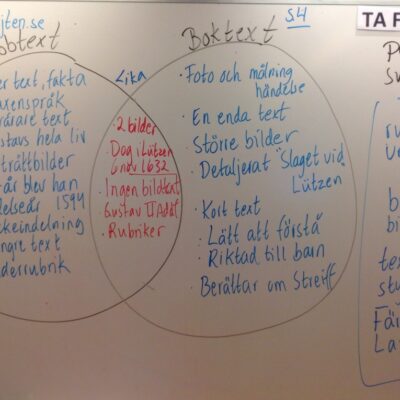 jten.se
obtext
er text, fakta
uxenspråk
årare text
stavs hela liv
trättbilder
år blev han
delseår 1594
ckeindelning
ngre text
derrubrik
Lika
• 2 bilder
• Dag i Lützen
6 nov 1632
• Ingen bildtext
Gustav II Adolf
• Rubriker
s.4
Boktext
• Foto och målning
händelse
• En enda text
• Större bilder
• Detaljerat "Slaget vid
Lützen
• Kort text
• Lätt att förstå
• Riktad till barn
• Berättar om Streiff
TA F